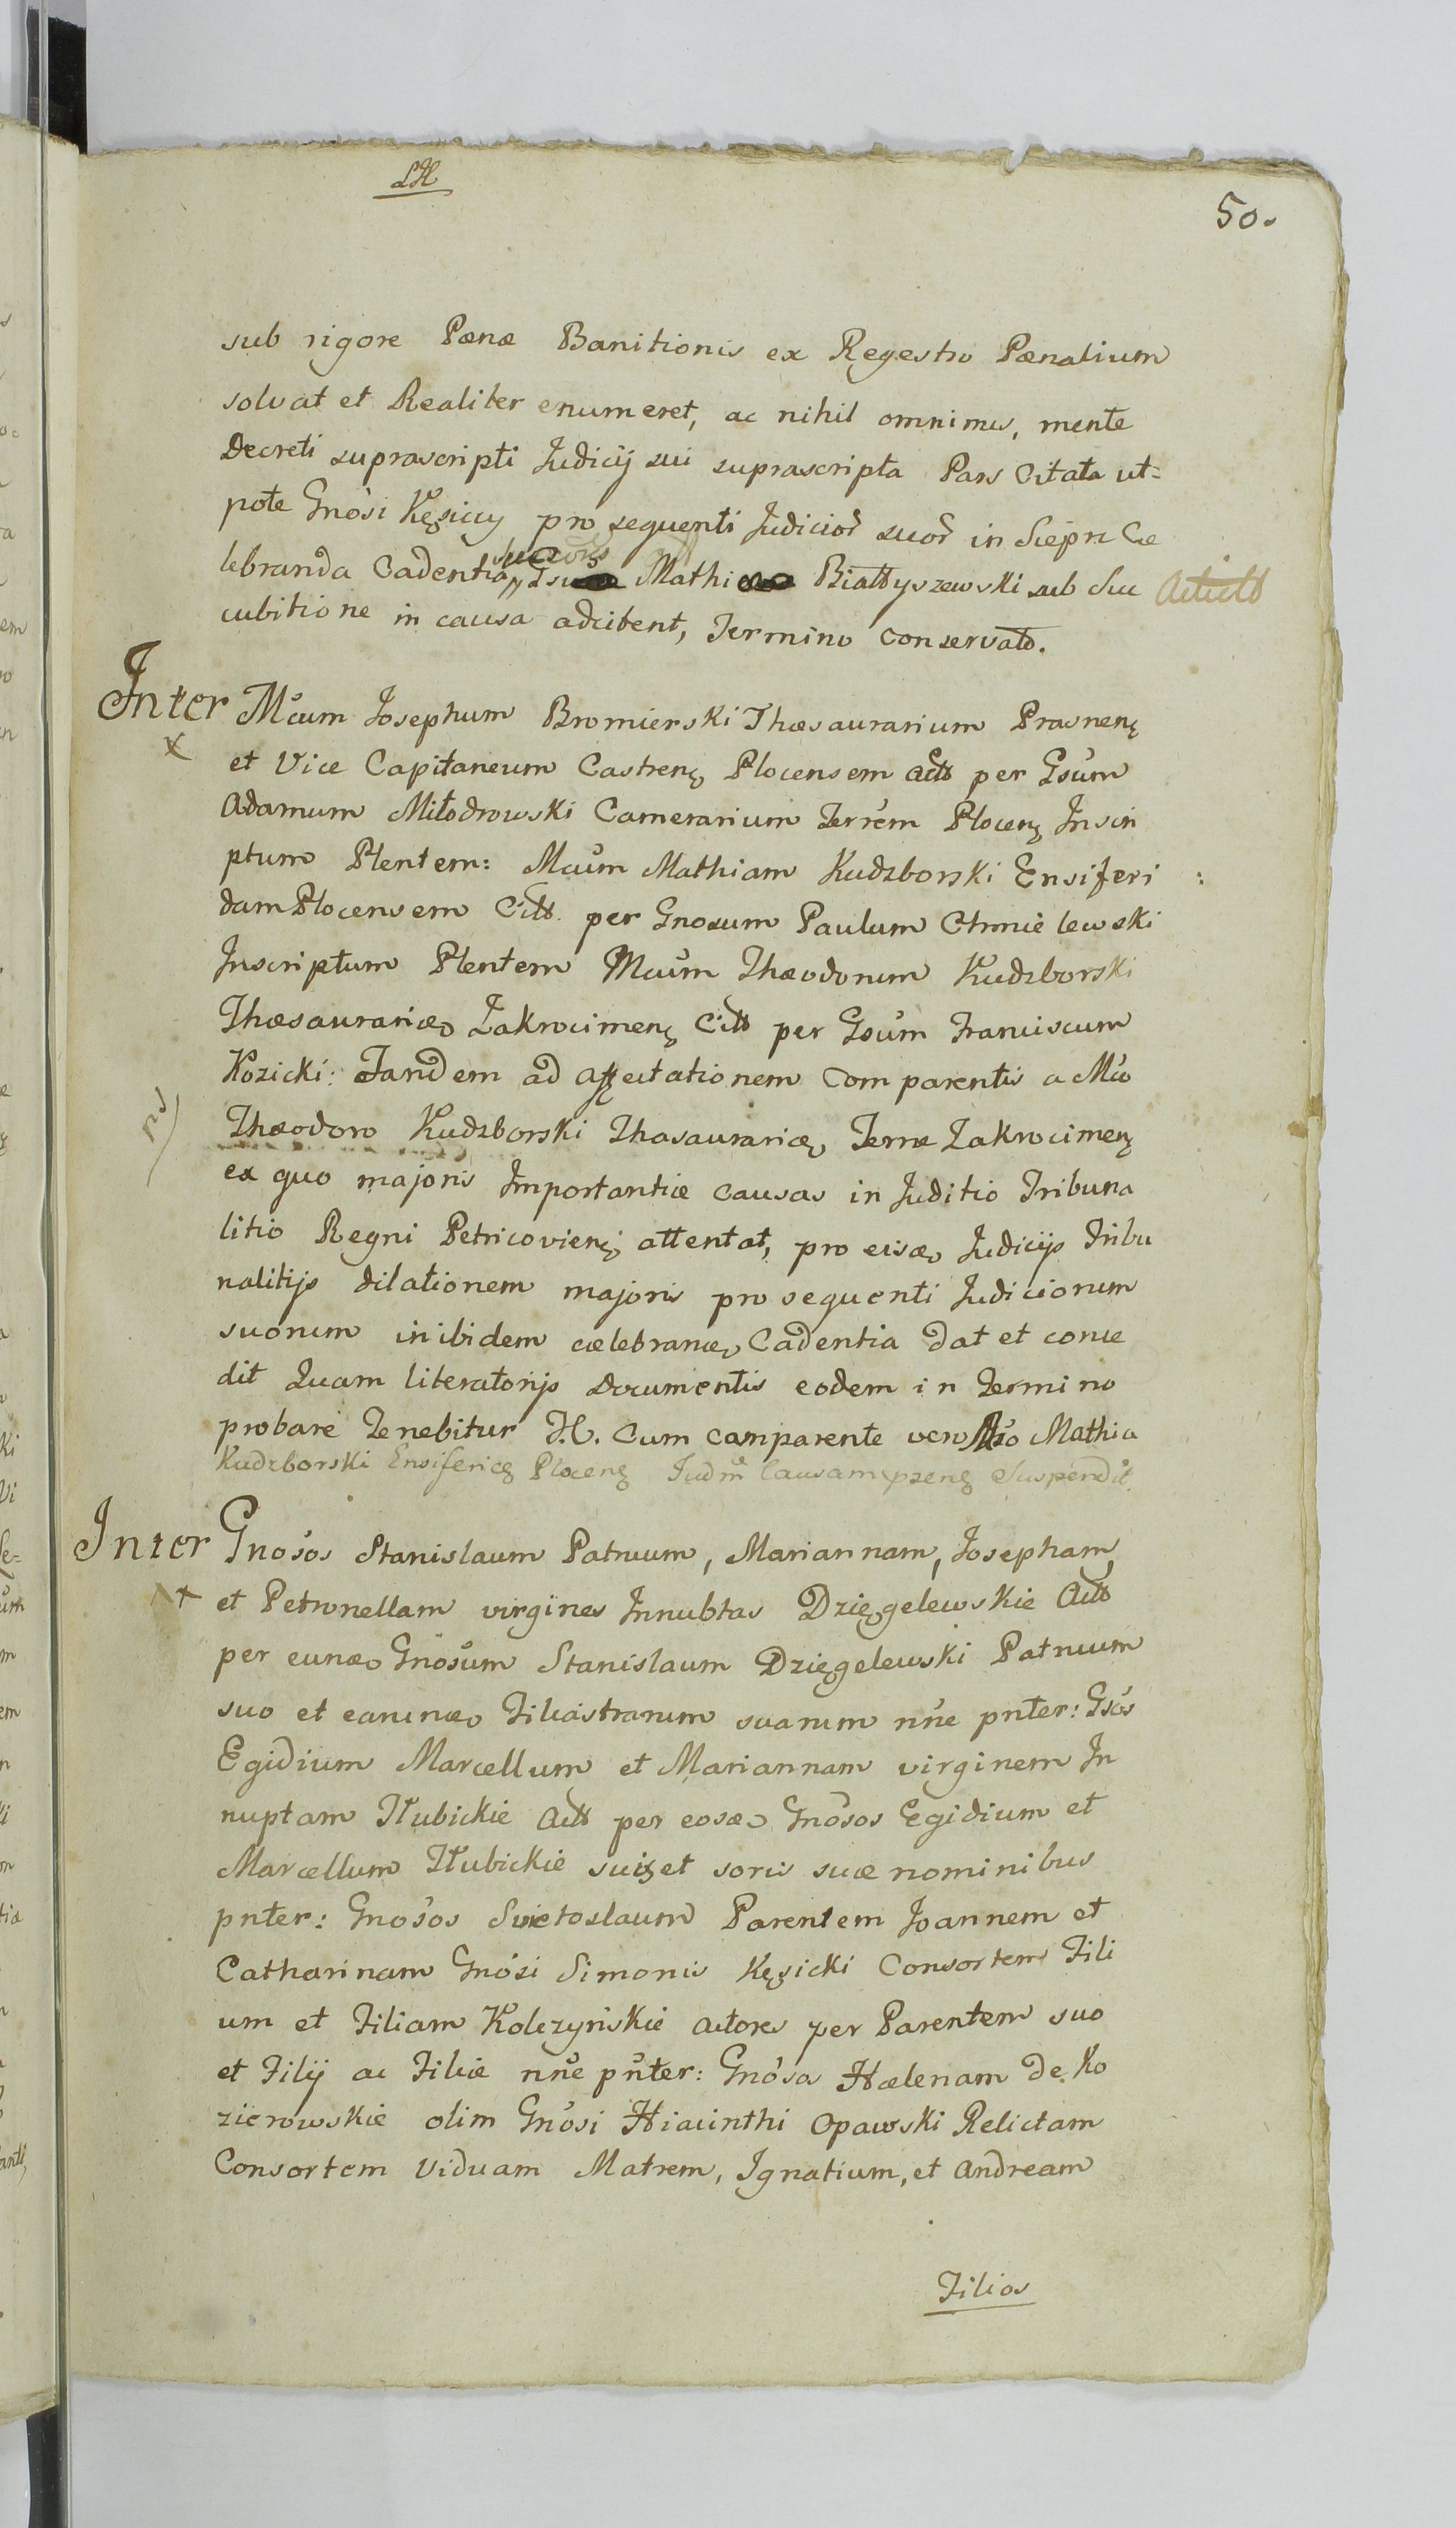 50.
sub rigore Pænæ Banitionis ex Regestro Pænalium
solvat et Realiter enumeret, ac nihil omnimus, mente
Decreti suprascripti Judicij sui suprascripta Pars Citata ut=
pote Gnosi Kęsiccy pro sequenti Judicior suor in Siepre Ce
lebranda Cadentia Mathi Białłyszewski sub Suc
cubitione in causa adcitent, Termino conservato.
Inter Mcum Josephum Bromierski Thæsaurarium Prasnenę
x
et Vice Capitaneum Castrenę Plocensem Actt per Gsum
Adamum Miłodrowski Camerarium Terrem Plocenę Inscri
ptum Plentem: Mcum Mathiam Kudzborski Ensiferi :
dam Plocensem Citt per Gnosum Paulum Chmielewski
Inscriptum Plentem Mcum Thæodorum Kudzborski
Thæsaurariæ Zakrocimenę Citt per Gsum Franciscum
Kozicki: Tandem ad affectationem Comparentis a Mco
Thæodoro Kudzborski Thæsaurariæ Terræ Zakrocimenę
ex quo majoris Importantiæ causas in Juditio Tribuna
litio Regni Petricovienę attentat, pro eisæ Judicijs Tribu
nalitijs dilationem majoris pro sequenti Judiciorum
suorum inibidem cælebranæ Cadentia dat et conce
dit Quam literatorijs Documentis eodem in Termino
probare Tenebitur J.C. Cum comparente vero Mathia
Kudzborski Ensifericę Plocenę Judm Causam pzenę Suspendit.
Inter Gnosos Stanislaum Patruum, Mariannam, Josepham,
x
et Petronellam virgines Innubtas Dzięgelewskie Actt
per eunæ Gnosum Stanislaum Dzięgelewski Patruum
suo et earunæ Filiastrarum suarum nne pnter: Gsos
Egidium Marcellum et Mariannam virginem In
nuptam Hubickie Actt per eosæ Gnosos Egidium et
Marcellum Hubickie suis et soris suæ nominibus
pnter: Gnosos Swietoslaum Parentem Joannem et
Catharinam Gnosi Simonis Kęsicki Consortem Fili
um et Filiam Kolczyńskie actores per Parentem suo
et Filij ac Filiæ nne pnter: Gnosa Hælenam de Ko
zierowskie olim Gnosi Hiacinthi Opawski Relictam
Consortem Viduam Matrem, Ignatium, et Andream
Filios